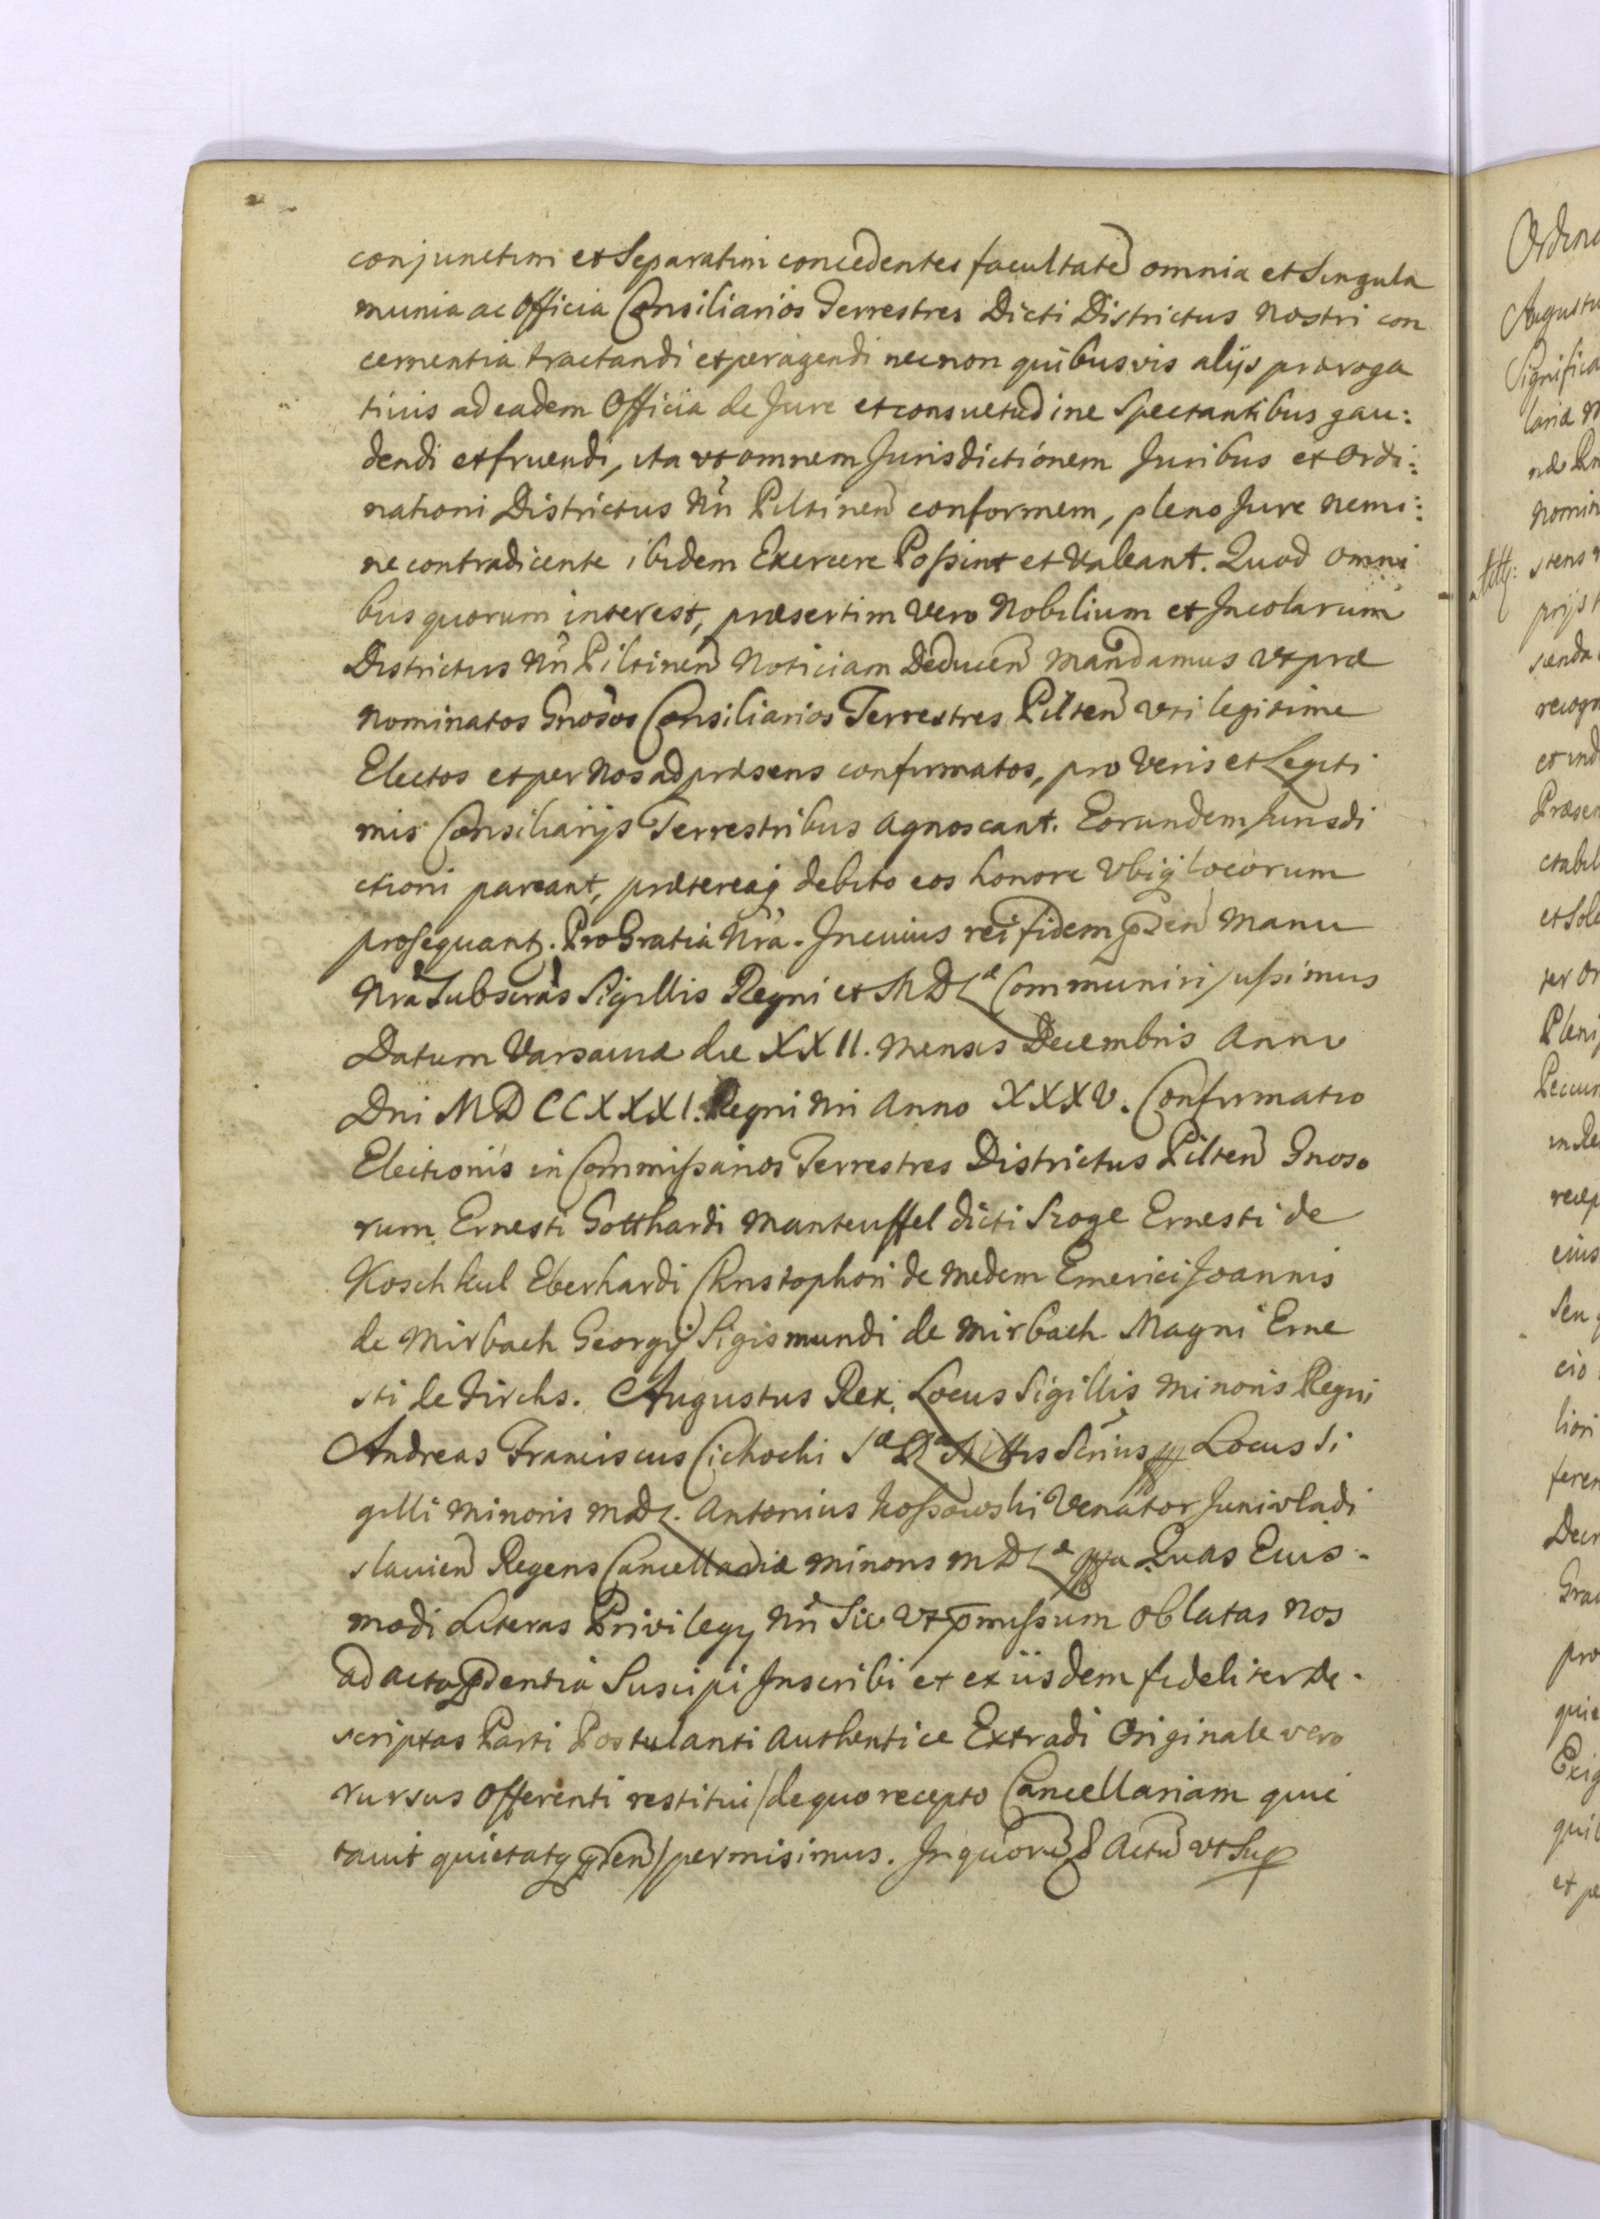 conjunctim et Separatim concedentes facultatē omnia et Singula
munia ac Officia Consiliarios Terrestres Dicti Districtus Nostri con
cernentia tractandi et peragendi necnon quibusvis alijs præroga
tiuis ad eadem Officia de Jure et consuetudine Spectantibus gau:
dendi et fruendi, ita vt omnem Jurisdictionem Juribus et Ordi:
nationi Districtus Nri Piltinen conformem, pleno Jure Nemi:
ne contradicente ibidem Exercere Possint et Valeant. Quod omni
bus quorum interest, præsertim Vero Nobilium et Incolarum
Districtus Nri Piltinen Noticiam Deducen Mandamus vt præ
nominatos Gnosos Consiliarios Terrestres Pilten vti legitime
Electos et per Nos ad præsens confirmatos, pro Veris et Legiti
mis Consiliarijs Terrestribus Agnoscant. Eorundem Jurisdi
ctioni pareant, prætereaq debito eos honore Vbiq locorum
prosequant. Pro Gratia Nra. In cuius rei fidem pnten Manu
Nra Subscras Sigillis Regni et M D L Communiri jussimus
Datum Varsauiæ die XXII. Mensis Decembris Anno
Dni MDCCXXXI. Regni Nri Anno XXXV. Confirmatio
Electionis in Commissarios Terrestres Districtus Pilten Gnoso
rum Ernesti Gotthardi Manteuffel dicti Szoge Ernesti de
Koschkul Eberhardi Christophori de Medem Emerici Joannis
de Mirbach Georgij Sigismundi de Mirbach Magni Erne
sti de Firchs. Augustus Rex. Locus Sigillis Minoris Regni
Andreas Franciscus Cichocki Locus Si
gilli Minoris M D L. Antonius Kossowski Venator Junivladi
slauien Regens Cancellariæ minoris M D L Quas Euis.
modi Literas Privilegy Nri Sic Vt pmissum Oblatas Nos
ad acta pntia Suscipi Inscribi et ex iisdem fideliter de.
scriptas Parti Postulanti Authentice Extradi Originale vero
rursus Offerenti restitui / de quo recepto Cancellariam quie
tauit quietatq pnten / permisimus. In quorū & Actū vt Sup